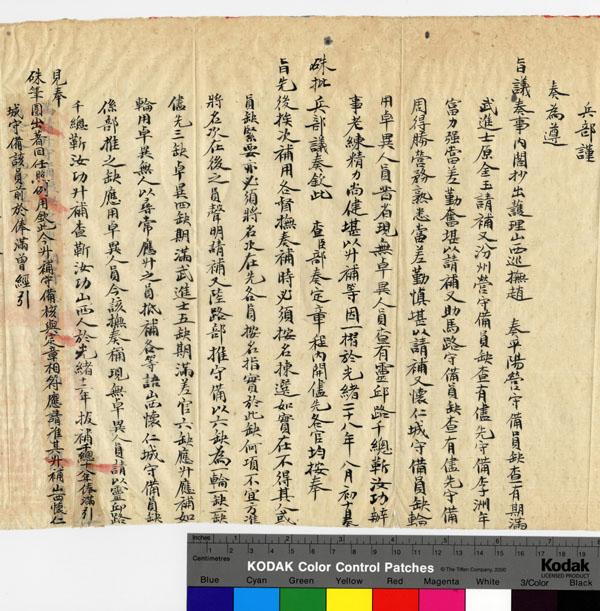 兵部謹
奏為遵
旨議奏事內閣抄出護理山西巡撫趙 奏平陽營守備員缺查有期滿
武進士原金玉請補又汾州營守備員缺查有儘先守備李洲年
富力强當差勤奮堪以請補又助馬路守備員缺查有儘先守備
周得勝營務熟悉當差勤慎堪以請補又懷仁城守備員缺輪
用卓異人員晋省現無卓異人員查有靈邱路千總靳汝功辦
事老練精力尚健堪以升補等因一摺於光緒二十八年八月初十日奉
硃批兵部議奏欽此 查臣部奏定章程內開儘先各官均按奉
旨先後挨次補用各督撫奏補時必須按名揀選如實在不得其人或
員缺緊要亦必須將名次在先各員按名指實於此缺何項不宜方准
將名次在後之員聲明請補又陸路部推守備以六缺為一輪一缺二缺
儘先三缺卓異四缺期滿武進士五缺期滿差官六缺應升應補如
輪用卓異無人以尋常應升之員抵補各等語山西懷仁城守備員缺
係部推之缺應用卓異人員今該撫奏稱現無卓異人員請以靈邱路
千總靳汝功升補查靳汝功山西人於光緒十二年拔補千總十八年俸滿引
見奉
硃筆圈出著回任照例用欽此今升補守備核與定章相符應請准其升補山西懷仁
城守備該員前於俸滿曾經引
inches
Centimetres
KODAK Color Control Patches
© The Tiffen Company, 2000
Kodak
LICENSED PRODUCT
Blue Cyan Green Yellow Red Magenta White 3/Color Black